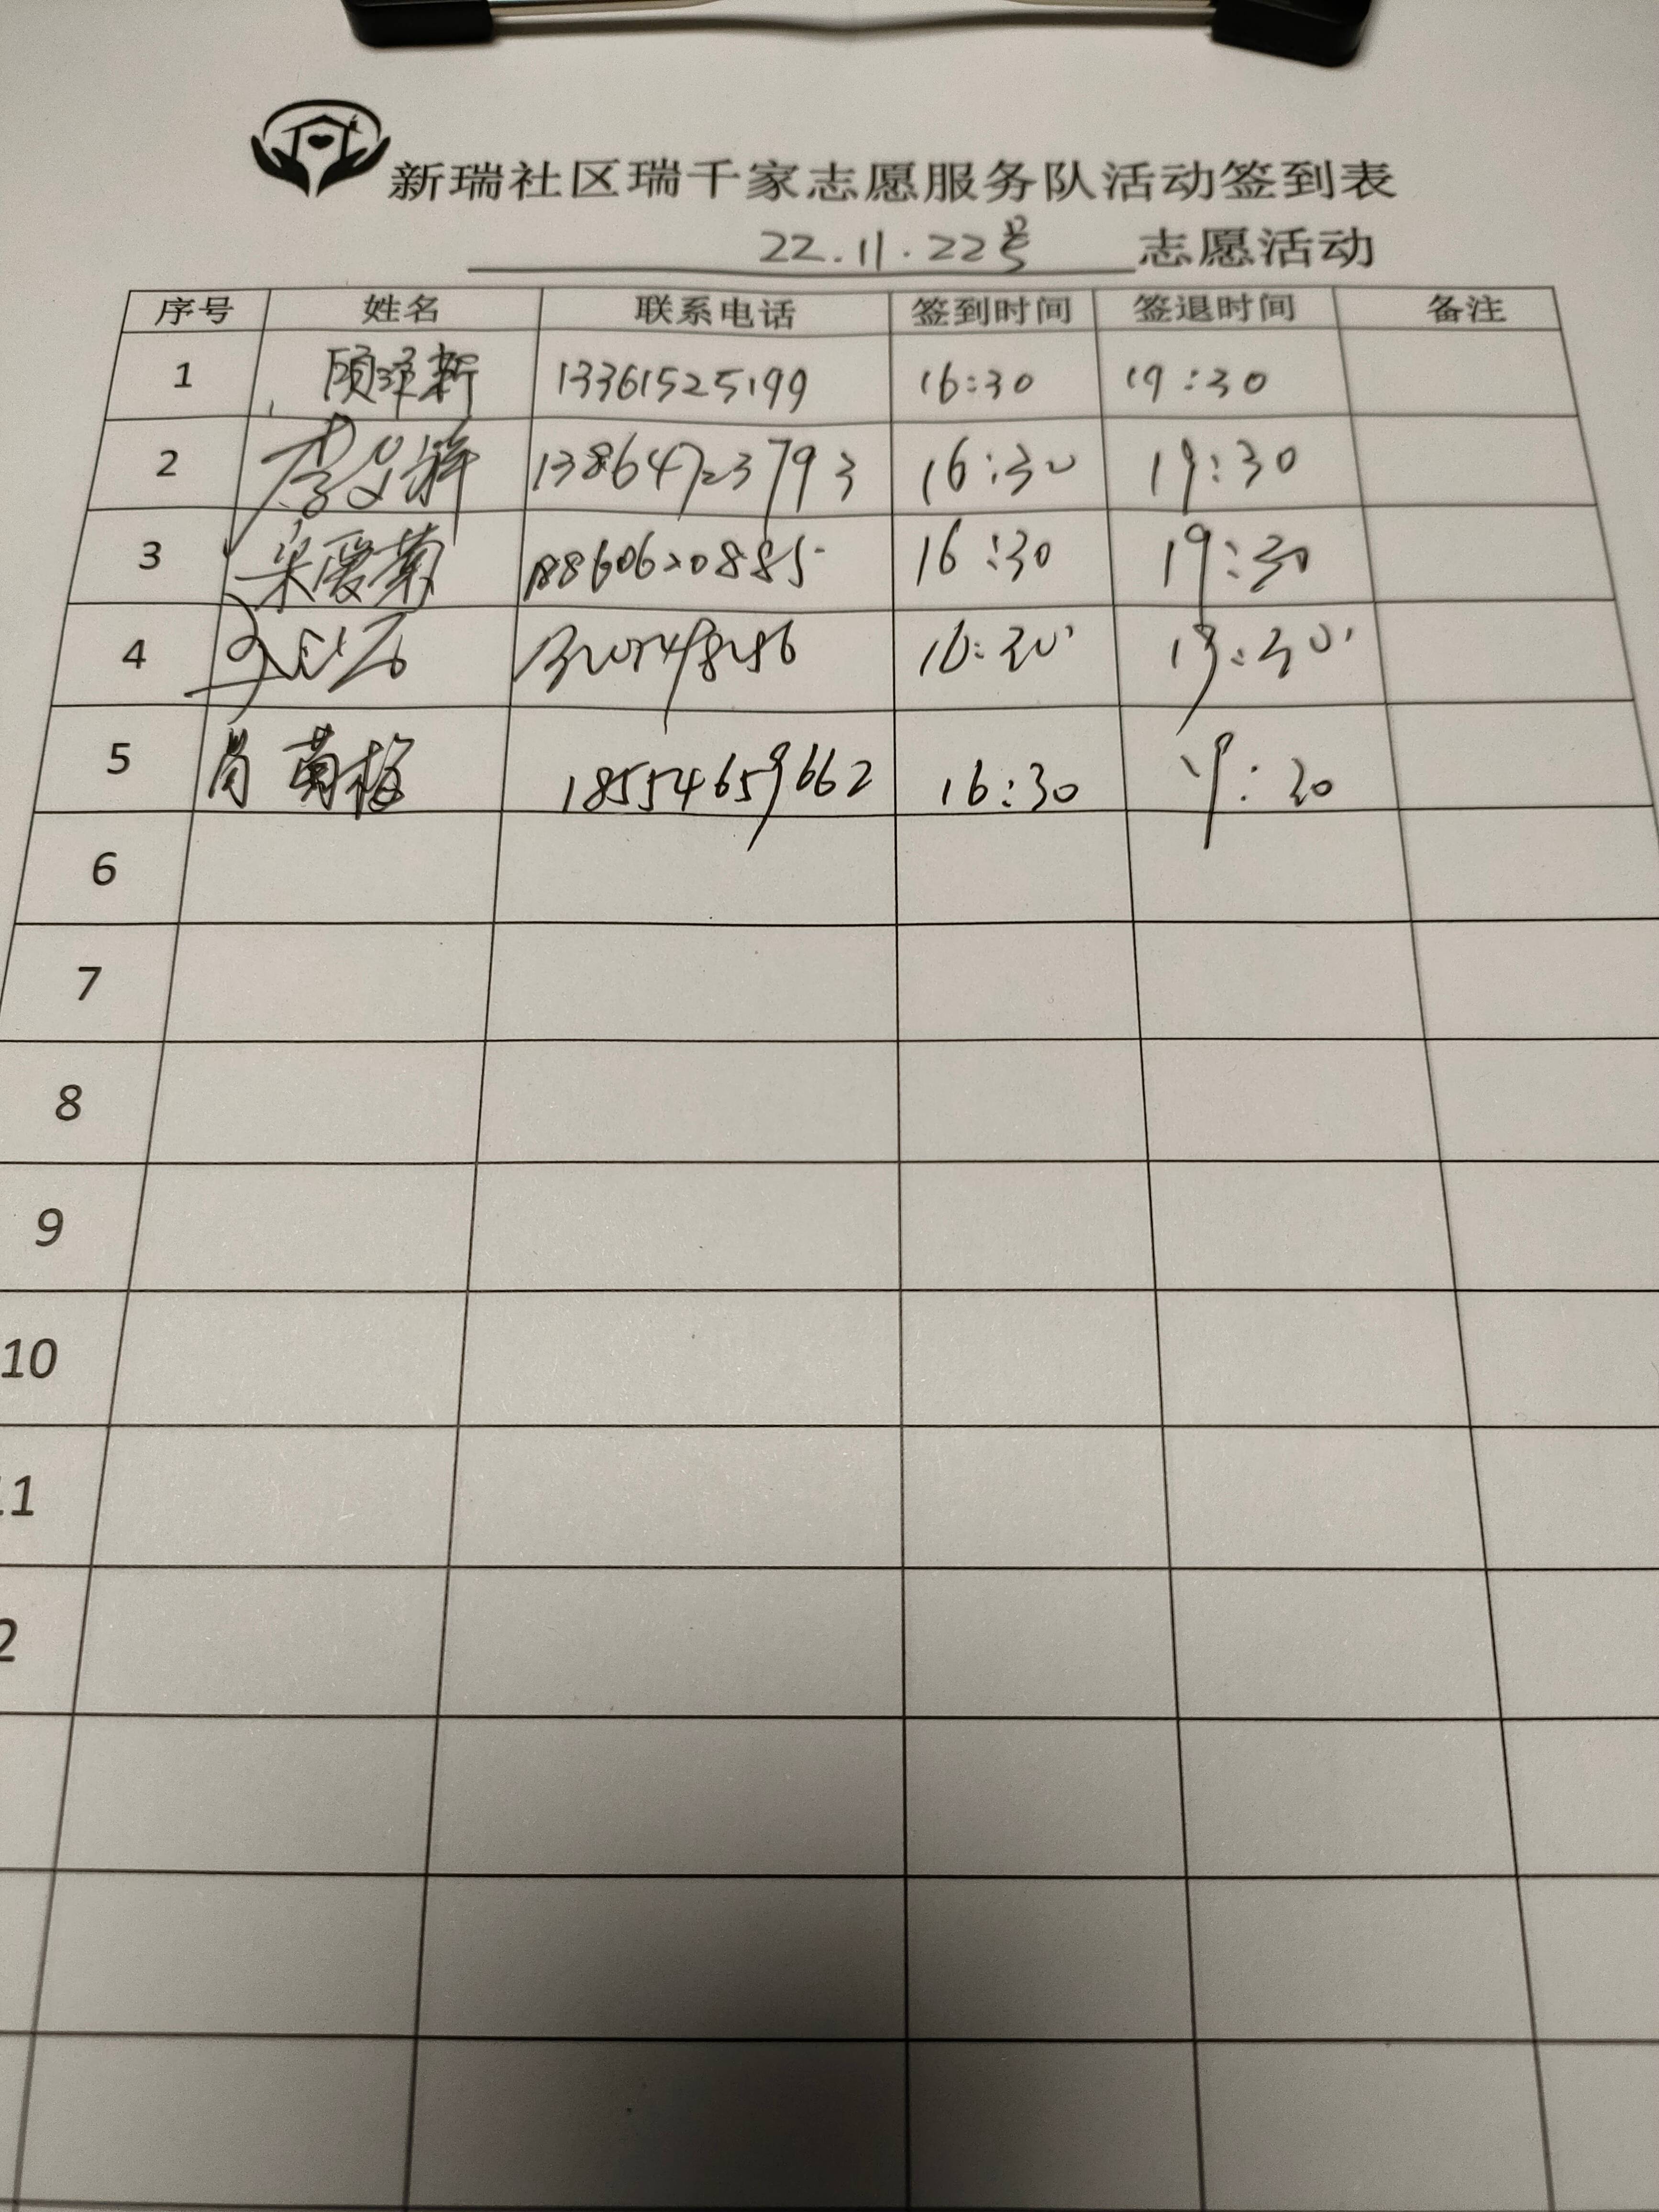 新瑞社区瑞千家志愿服务队活动签到表
22.11.22号 志愿活动
序号 姓名 联系电话 签到时间 签退时间 备注
1 顾泽新 13361525199 16:30 19:30
2 13864723793 16:30 19:30
3 宋爱菊 18860620885 16:30 19:30
4 16:30 19:30
5 肖菊梅 18554659662 16:30 19:30
6
7
8
9
10
11
2